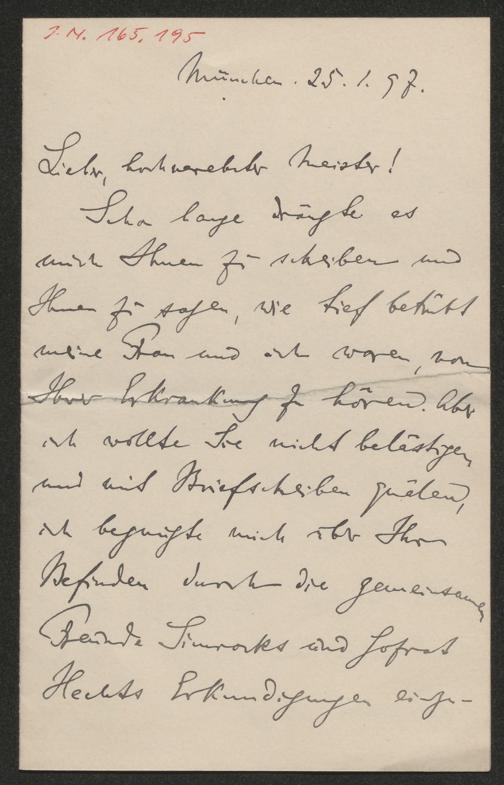 J.N. 165.195
München. 25.1.97.
Lieber, hochverehrter Meister!
Schon lange drängte es
mich Ihnen zu schreiben und
Ihnen zu sagen, wie tief betrübt
meine Frau und ich waren, von
Ihrer Erkrankung zu hören. Aber
ich wollte Sie nicht belästigen
und mit Briefschreiben quälen,
ich begnügte mich über Ihr
Befinden durch die gemeinsamen
Freunde Simrocks und Hofrat
Hechts Erkundigungen einzu-